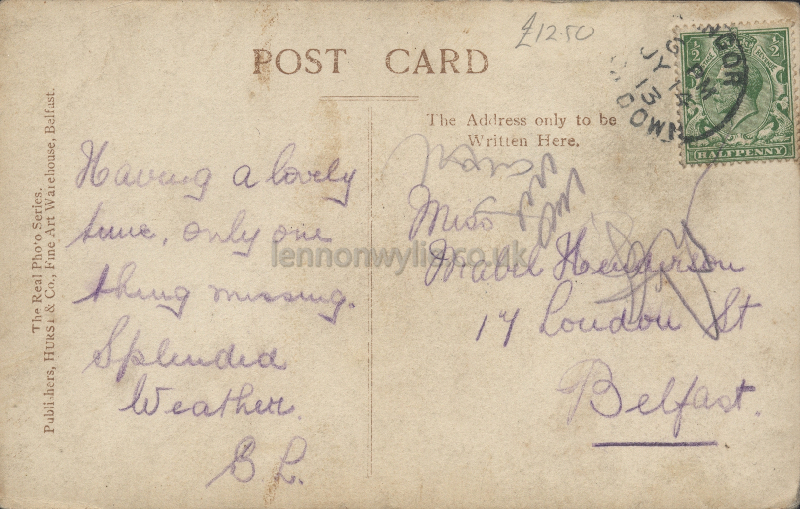 £12.50
POST CARD
The Address only to be
Written Here.
The Real Photo Series.
Publishers, HURST & Co., Fine Art Warehouse, Belfast.
Having a lovely
time, only one
thing missing.
Splendid
Weather.
B L.
Miss
Mabel Henderson
17 London St
Belfast.
BANGOR
CO. DOWN
JY 14
13
½
½
HALFPENNY
lennonwylie.co.uk